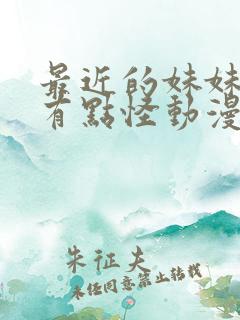 最近的妹妹
有點怪動漫
朱征夫
未经同意禁止转载